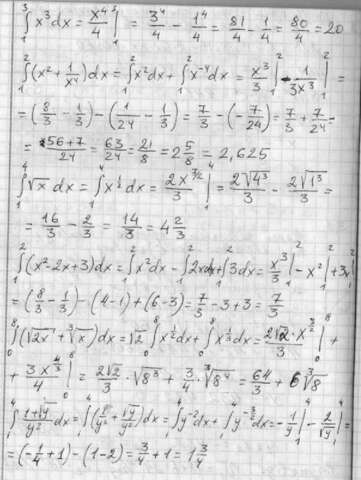 ∫₁³ x³dx = x⁴/4 |₁³ = 3⁴/4 - 1⁴/4 = 81/4 - 1/4 = 80/4 = 20
∫₁² (x² + 1/x⁴)dx = ∫₁² x²dx + ∫₁² x⁻⁴dx = x³/3 |₁² - 1/3x³ |₁² =
= (8/3 - 1/3) - (1/24 - 1/3) = 7/3 - (-7/24) = 7/3 + 7/24 =
= 56+7/24 = 63/24 = 21/8 = 2 5/8 = 2,625
∫₁⁴ √x dx = ∫₁⁴ x^½ dx = 2x^3/2 /3 |₁⁴ = 2√4³/3 - 2√1³/3 =
= 16/3 - 2/3 = 14/3 = 4 2/3
∫₁² (x²-2x+3)dx = ∫₁² x²dx - ∫₁² 2xdx + ∫₁² 3dx = x³/3 |₁² - x² |₁² + 3x |₁²
= (8/3 - 1/3) - (4-1) + (6-3) = 7/3 - 3 + 3 = 7/3
∫₀⁸ (√2x + ³√x)dx = √2 ∫₀⁸ x^½ dx + ∫₀⁸ x^⅓ dx = 2√2·x^3/2 /3 |₀⁸ +
+ 3x^4/3 /4 |₀⁸ = 2√2/3 · √8³ + 3/4 · ³√8⁴ = 64/3 + 6 ³√8
∫₁⁴ 1+√y/y² dx = ∫₁⁴ (/y² + √y/y²)dx = ∫₁⁴ y⁻²dx + ∫₁⁴ y^-3/2 dx = -1/y |₁⁴ - 2/√y |₁⁴ =
= (-1/4 + 1) - (1-2) = 3/4 + 1 = 1 3/4